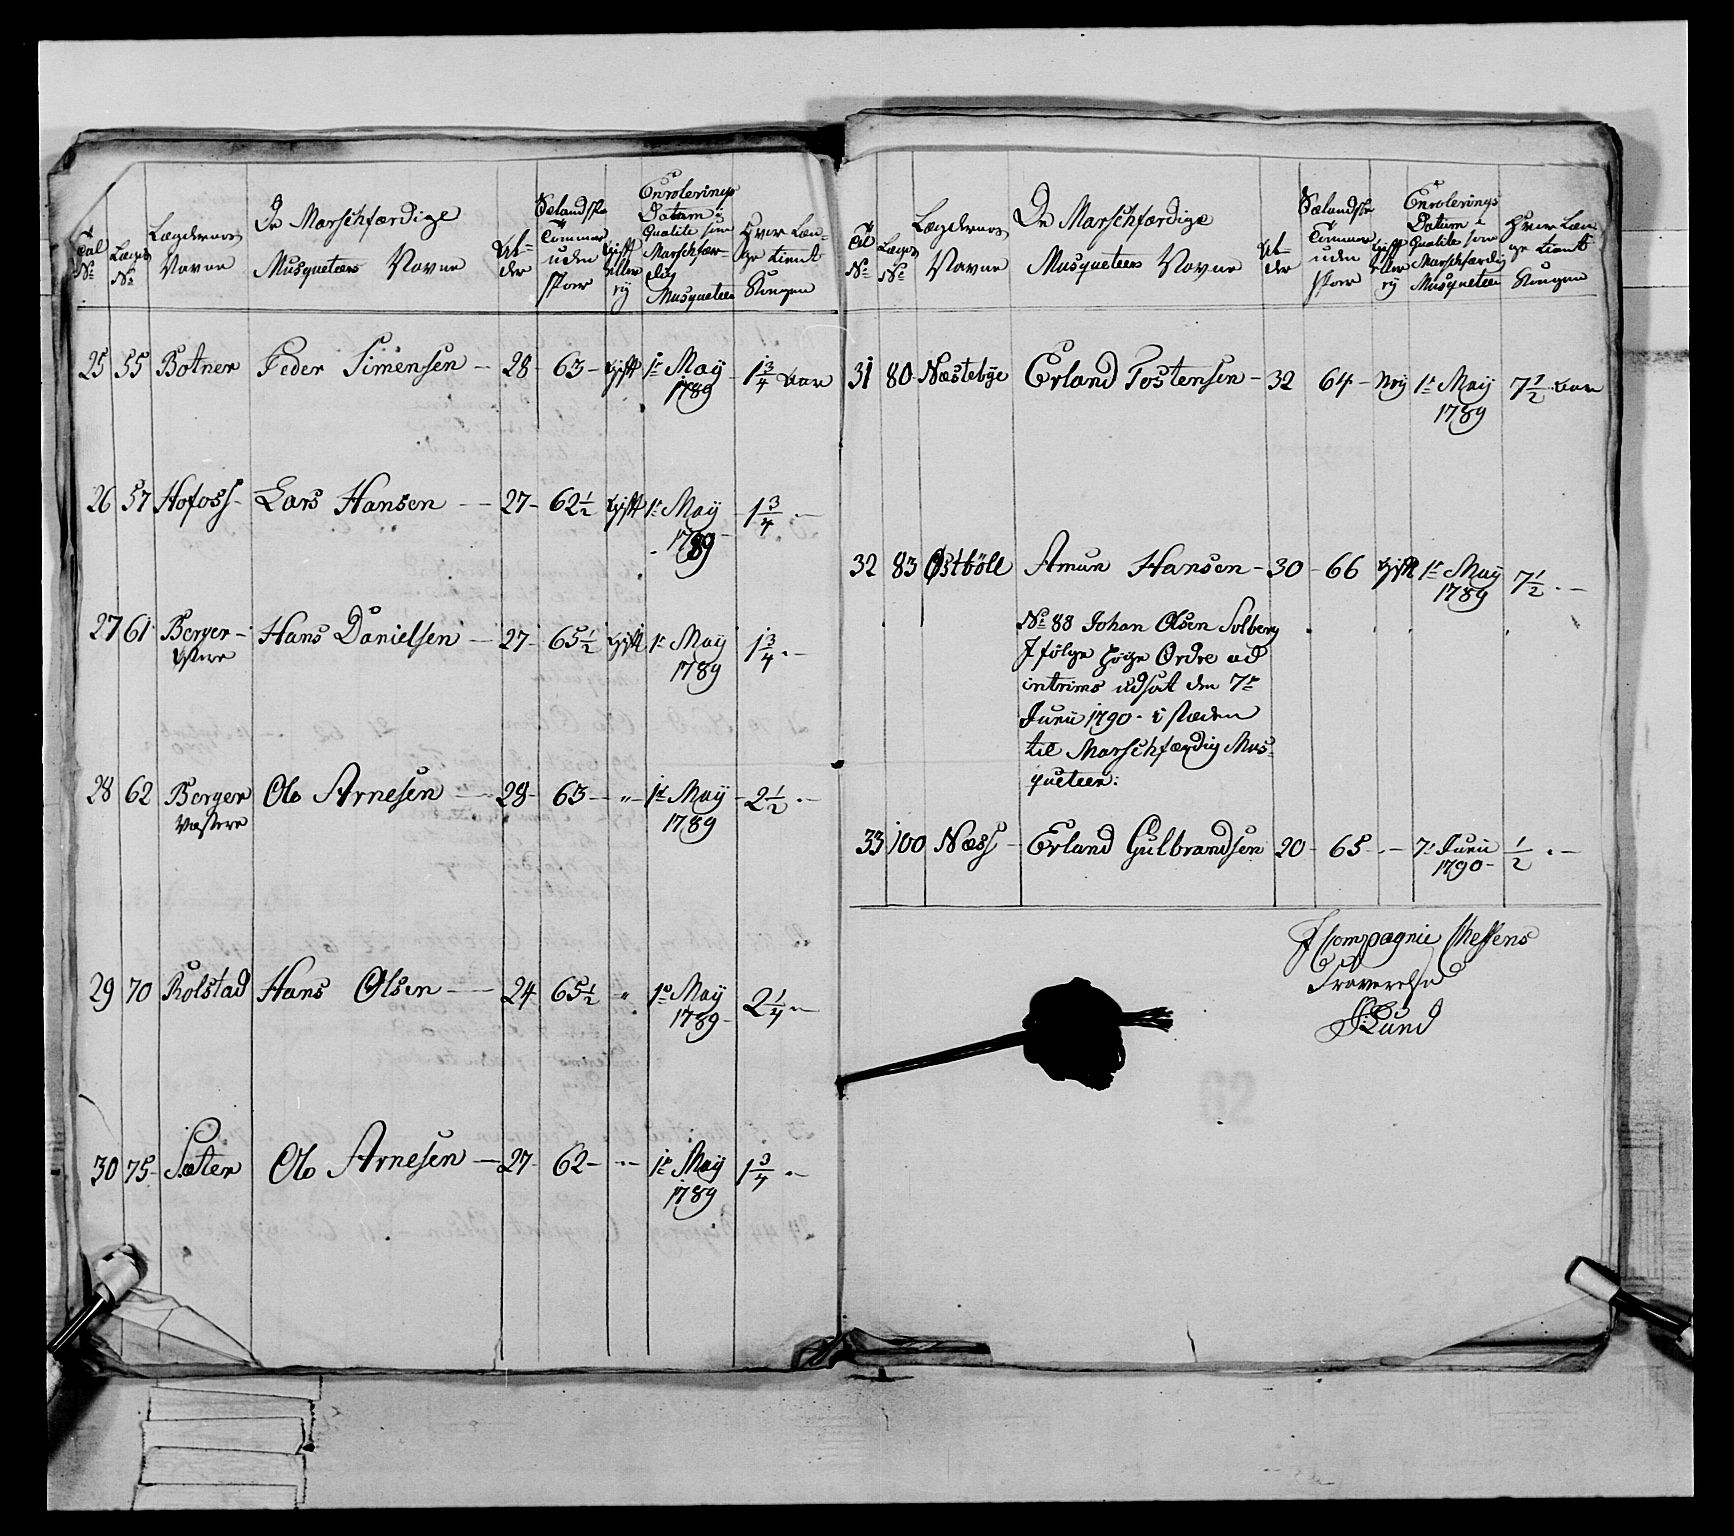 Tal No | Lægds No | Lægdernes Navne | De Marschfærdige Musqueteers Navne | Al-der | Sælandske Tommer uden Skoer | Gift eller ej | Enrolerings Datum i Qualite som Marschfærdig Musqueteer | Hvor Længe tient Kongen
25 55 Botner Peder Simensen — 28 - 63 - Gift 1te May 1789 - 1 3/4 Aar
26 57 Hofoss - Lars Hansen — 27 - 62 1/2 Gift 1te May 1789 - 1 3/4 —
27 61 Berger - Østere Hans Danielsen — 27 - 65 1/2 Gift 1te May 1789 1 3/4 —
28 62 Berger Vestere Ole Arnesen — 28 - 63 - " - 1te May 1789 - 2 1/2 —
29 70 Rolstad Hans Olsen — 24 65 1/2 " 1te May 1789 - 2 1/4 —
30 75 - Sæter Ole Arnesen — 27 - 62 - — 1te May 1789 1 3/4 —
Tal No | Lægds No | Lægdernes Navne | De Marschfærdige Musqueteers Navne | Al-der | Sælandske Tommer uden Skoer | Gift eller ej | Enrolerings Datum i Qualite som Marschfærdig Musqueteer | Hvor Længe tient Kongen
31 80 Næstebye Erland Tostensen - 32 64 - Nej 1te May 1789 7 1/2 Aar
32 83 Østböll Amun Hansen - 30 - 66 Gift 1te May 1789 7 1/2 —
No 88 Johan Olsen Solberg
Ifølge høye Ordre ad
intrims udsat den 7de
Junii 1790 - i stæden
til Marschfærdig Mus-
queteer:
33 100 Næss - Erland Gulbrandsen 20 - 65 - — 7de Junii 1790 - 1/2 —
I Compagnie Chefens
Fraværelse
Lund